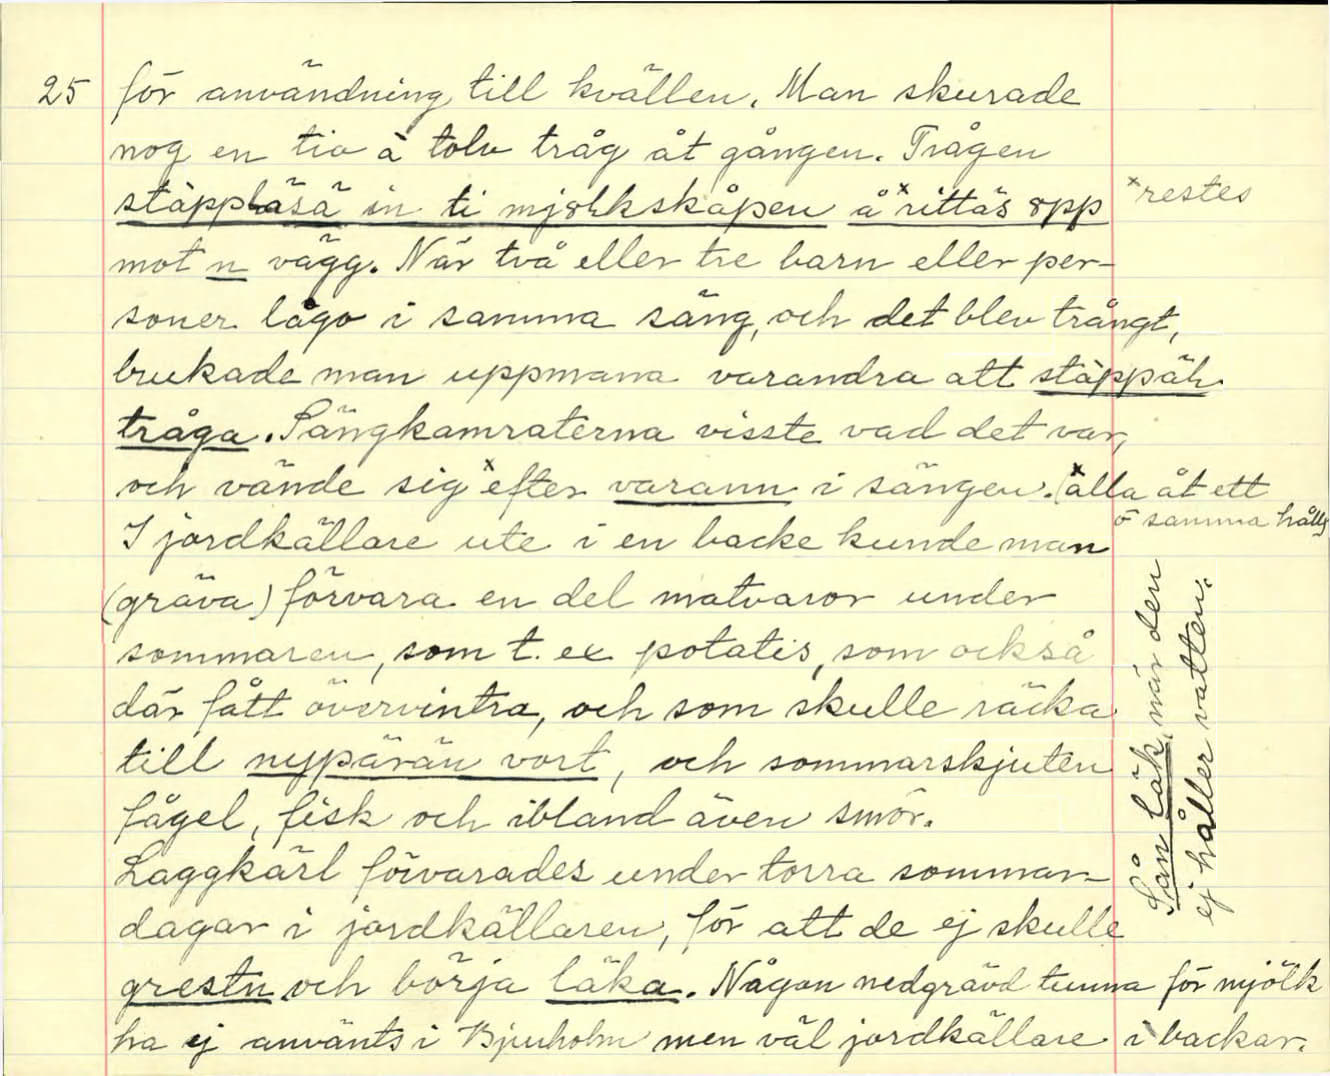 25 för användning till kvällen. Man skurade
nog en tio à tolv tråg åt gången. Trågen
stäpplässä in ti mjölkskåpen å ˣrittäs opp ˣrestes
mot n vägg. När två eller tre barn eller per-
soner lågo i samma säng, och det blev trångt,
brukade man uppmana varandra att stäppäh
tråga. Sängkamraterna visste vad det var,
och vände sig ˣefter varann i sängen. (ˣalla åt ett
o samma håll)
I jordkällare ute i en backe kunde man
(gräva) förvara en del matvaror under
sommaren, som t. ex potatis, som också
där fått övervintra, och som skulle räcka
till nypärän vort, och sommarskjuten
fågel, fisk och ibland även smör.
Laggkärl förvarades under torra sommar-
dagar i jordkällaren, för att de ej skulle
grestn och börja läka. Någon nedgrävd tunna för mjölk
ha ej använts i Bjurholm men väl jordkällare i backar.
Sån läk, när den
ej håller vatten.